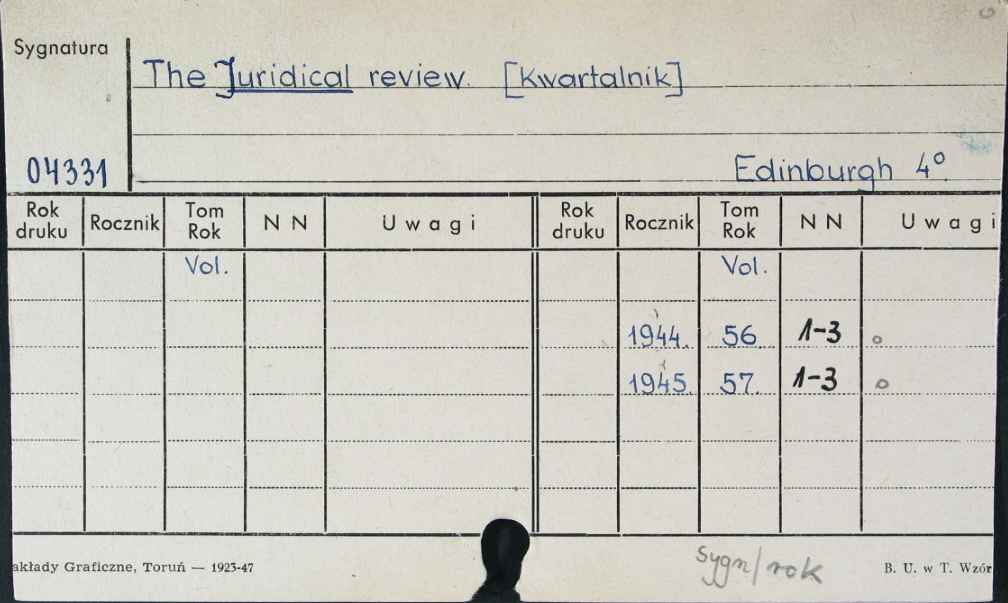 Sygnatura
The Juridical review. [Kwartalnik]
04331
Edinburgh 4º.
Rok druku Rocznik Tom Rok N N Uwagi Rok druku Rocznik Tom Rok N N Uwagi
Vol. Vol.
1944. 56 1-3
1945. 57. 1-3
sygn/rok
akłady Graficzne, Toruń — 1923-47 B. U. w T. Wzór